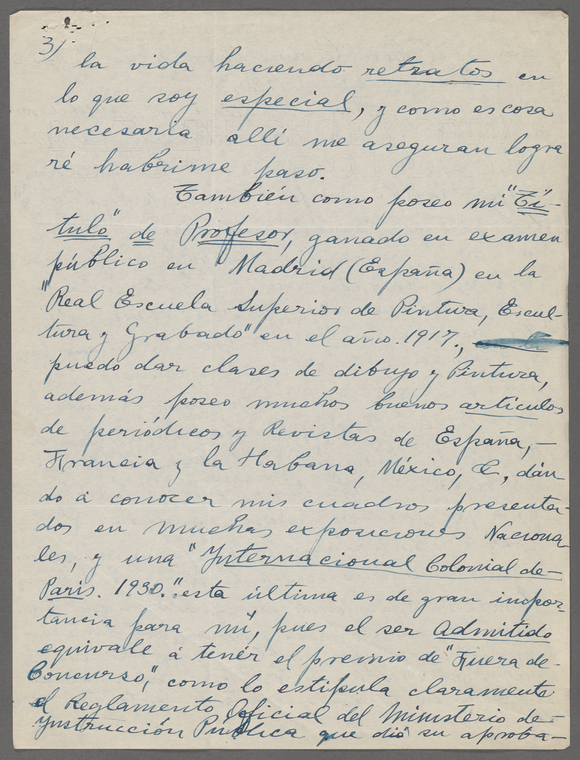 3)
la vida haciendo retratos en
lo que soy especial, y como es cosa
necesaria allí me aseguran logra
ré habrirme paso.
También como poseo mi "Tí-
tulo" de Profesor, ganado en examen
público en Madrid (España) en la
"Real Escuela Superior de Pintura, Escul-
tura y Grabado" en el año. 1917.,
puedo dar clases de dibujo y Pintura,
además poseo muchos buenos artículos
de periódicos y Revistas de España,-
Francia y la Habana, México, &, dán-
do á conocer mis cuadros presenta-
dos en muchas exposiciones Naciona-
les, y una "Internacional Colonial de-
París. 1930." esta última es de gran impor-
tancia para mí, pues el ser Admitido
equivale á tenér el premio de "Fuera de-
Concurso," como lo estipula claramente
el Reglamento Oficial del Ministerio de-
Ynstrucción Pública que dió su aproba-